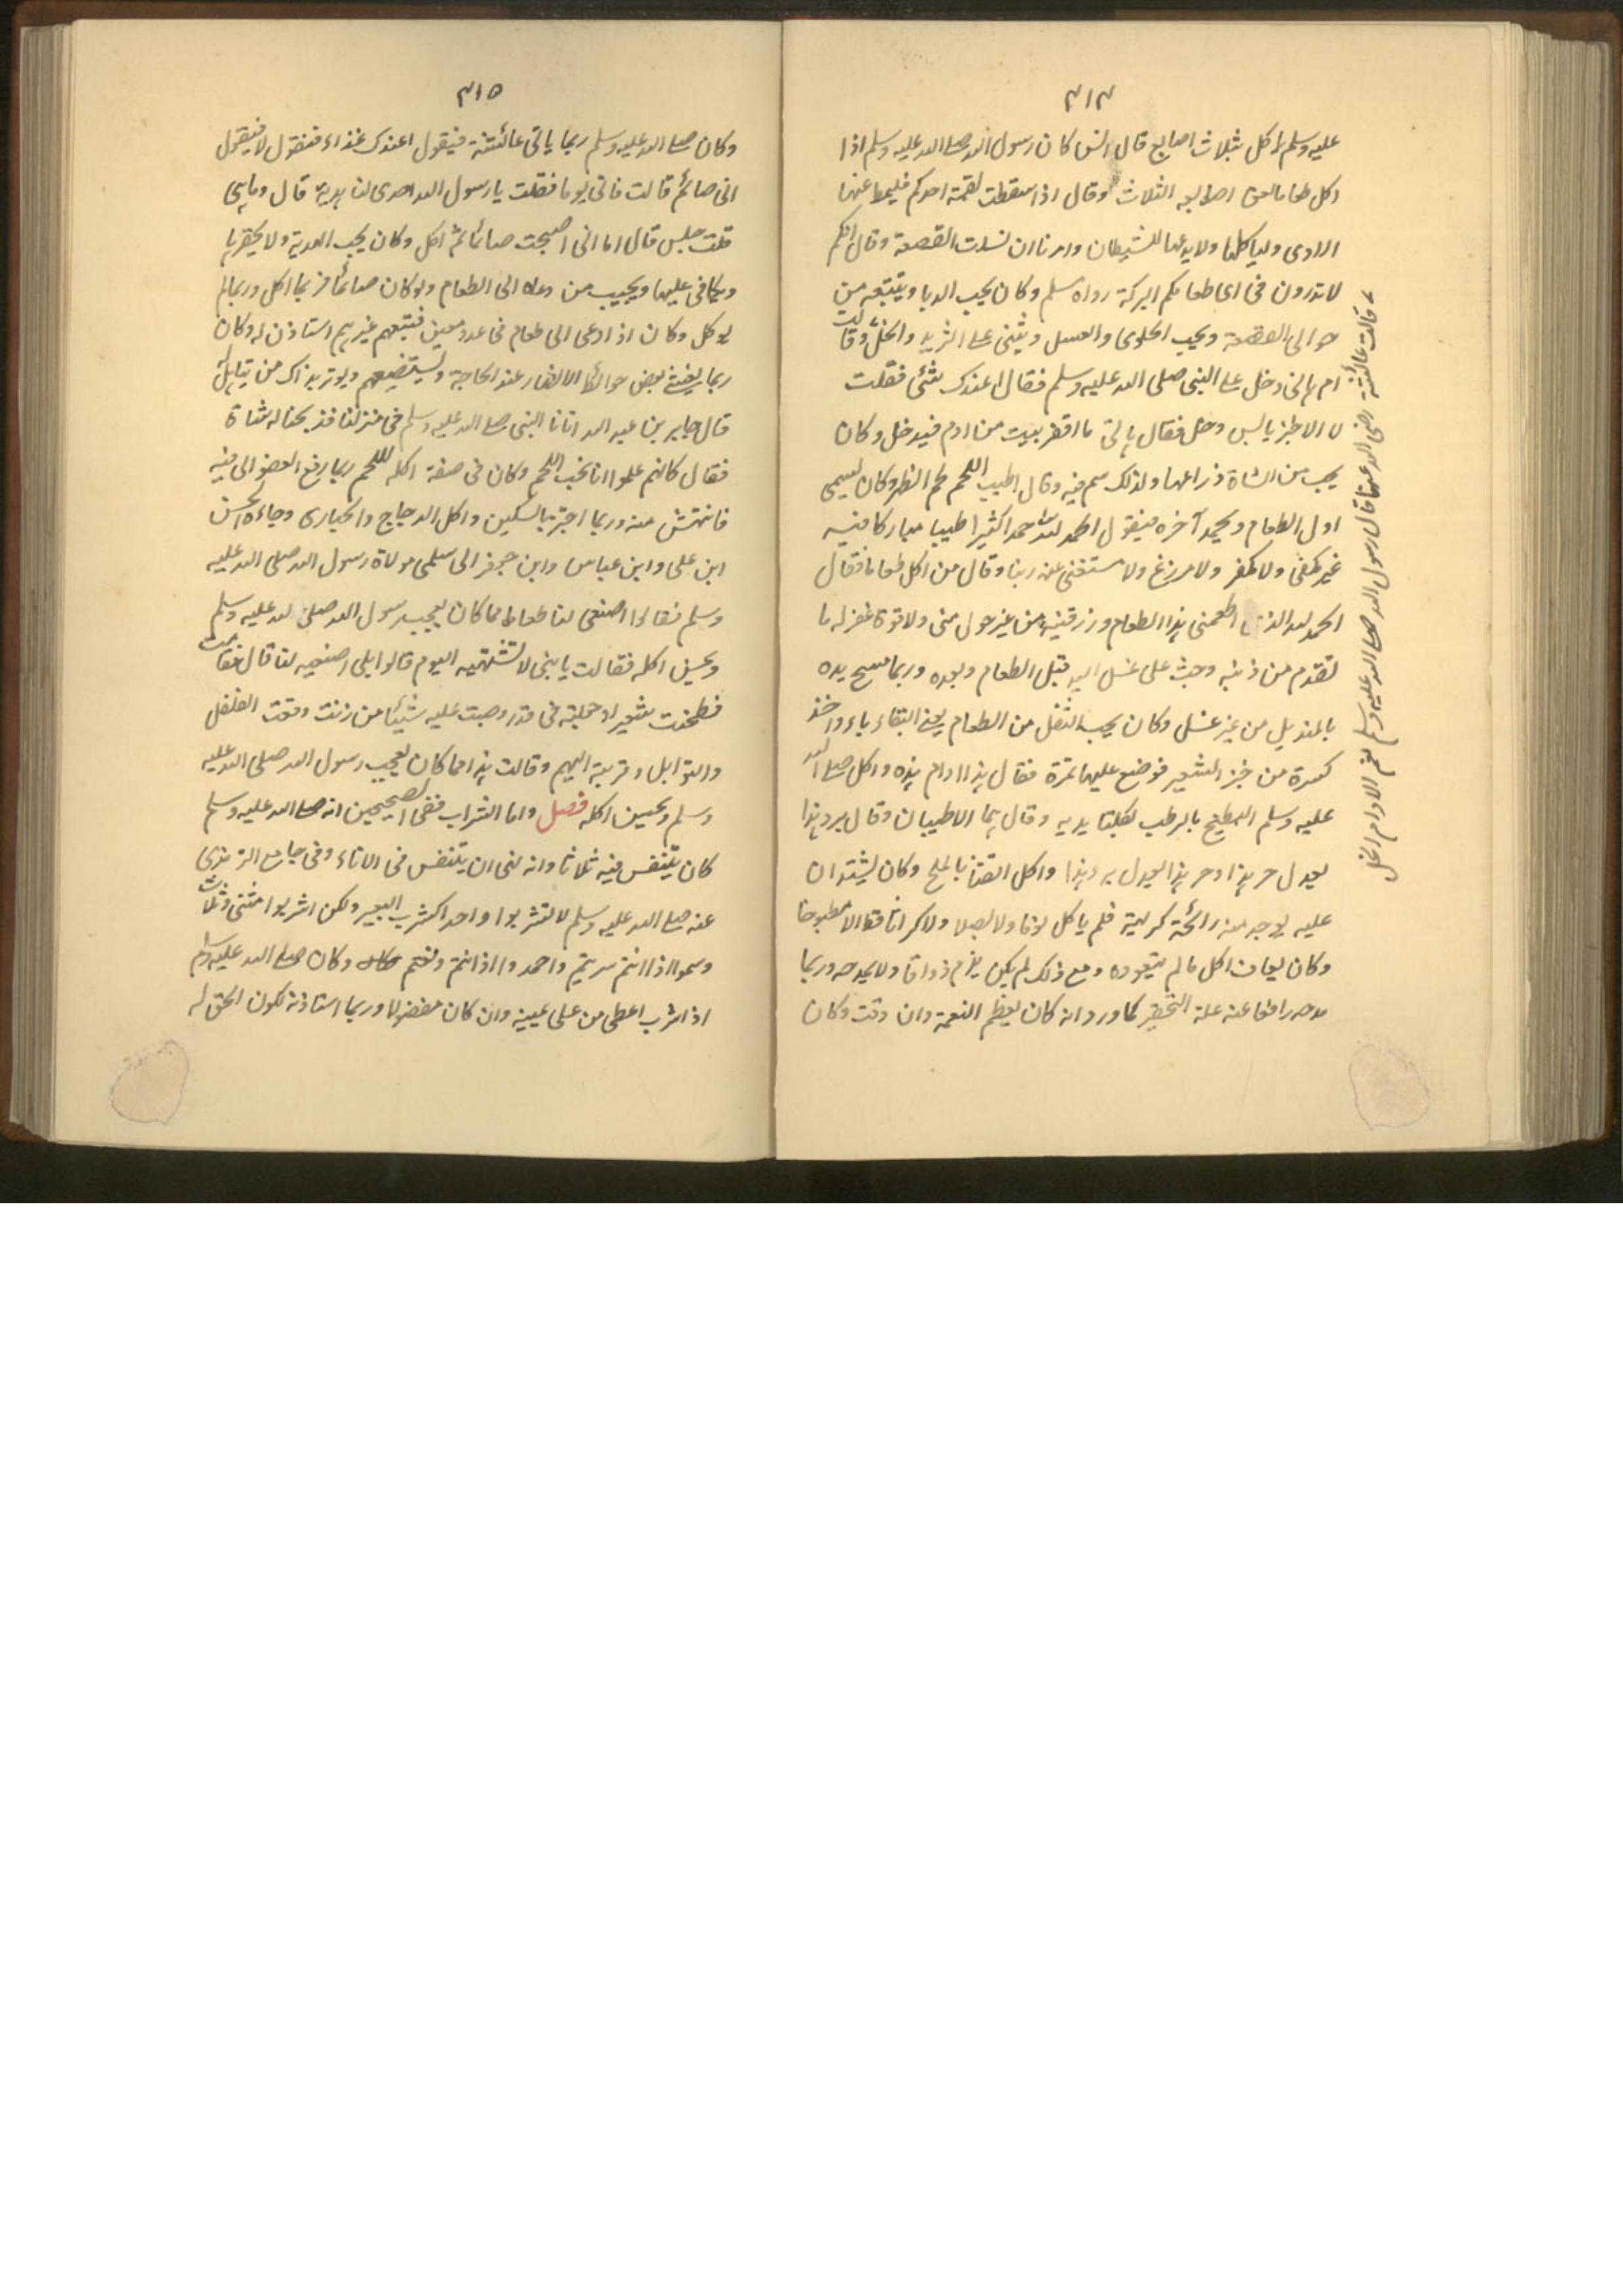 ٣١٤
عليه وسلم ياكل بثلاث اصابع قال انس كان رسول الله صلى الله عليه وسلم اذا
اكل طعاما لعق اصابعه الثلاث وقال اذا سقطت لقمة احدكم فليمط عنها
الاذى ولياكلها ولا يدعها للشيطان وامرنا ان نسلت القصعة وقال انكم
لا تدرون فى اى طعامكم البركة رواه مسلم وكان يحب الدبا ويتتبعه من
حوالى القصعة ويحب الحلوى والعسل ويثنى على الثريد والخل وقالت
ام هانى دخل على النبى صلى الله عليه وسلم فقال اعندك شئ فقلت
لا الا خبز يابس وخل فقال هاتى ما اقفر بيت من ادم فيه خل وكان
يحب من الشاة ذراعها ولذلك سم فيه وقال اطيب اللحم لحم الظهر وكان يسمى
اول الطعام ويحمد آخره فيقول الحمد لله حمدا كثيرا طيبا مباركا فيه
غير مكفى ولا مكفر ولا مودع ولا مستغنى عنه ربنا وقال من اكل طعاما فقال
الحمد لله الذى اطعمنى هذا الطعام ورزقنيه من غير حول منى ولا قوة غفر له ما
تقدم من ذنبه وحث على غسل اليد قبل الطعام وبعده وربما مسح يده
بالمنديل من غير غسل وكان يحب الثفل من الطعام يعنى البقاء ياء واخذ
كسرة من خبز الشعير فوضع عليها تمرة فقال هذا ادام هذه واكل صلى الله
عليه وسلم البطيخ بالرطب بكلتا يديه وقال هما الاطيبان وقال برد هذا
يعدل حر هذا وحر هذا يعدل برد هذا واكل القثا بالملح وكان يشتد ان
عليه يوجد منه رائحة كريهة فلم ياكل ثوما ولا بصلا ولا كراثا قط الا مطبوخا
وكان يعاف اكل ما لم يتعوده ومع ذلك لم يكن يذم ذواقا ولا يمدحه وربما
مدحه رافعا عنه علة التحقير كما ورد انه كان يعظم النعمة وان دقت وكان
وقالت عائشة رضى الله عنها قال رسول الله صلى الله عليه وسلم نعم الادام الخل
٣١٥
وكان صلى الله عليه وسلم ربما ياتى عائشة فيقول اعندك غذاء فتقول لا فيقول
انى صائم قالت فاتى يوما فقلت يا رسول الله اهدى لنا هدية قال وما هى
قلت حيس قال اما انى اصبحت صائما ثم اكل وكان يحب الهدية ولا يحقرها
ويكافى عليها ويجيب من دعاه الى الطعام ولو كان صائما فربما اكل وربما لم
ياكل وكان اذا دعى الى طعام فى عدد معين فتبعهم غيرهم استاذن له وكان
ربما يغشى بعض حوائط الانصار عند الحاجة ويستضيفهم ويوثر بذاك من يتاهل له
قال جابر بن عبد الله اتانا النبى صلى الله عليه وسلم فى منزلنا فذبحنا له شاة
فقال كانهم علموا انا نحب اللحم وكان فى صفة اكله للحم ربما رفع العضو الى فيه
فانتهش منه وربما اجتز بالسكين واكل الدجاج والحبارى وجاءه الحسن
ابن على وابن عباس وابن جعفر الى سلمى مولاة رسول الله صلى الله عليه
وسلم فقالوا اصنعى لنا طعاما مما كان يعجب رسول الله صلى الله عليه وسلم
ويحسن اكله فقالت يا بنى لا تشتهيه اليوم قالوا بلى اصنعيه لنا قال فقامت
فطحنت شعيرا وجعلته فى قدر وصبت عليه شيئا من زيت ودقت الفلفل
والتوابل وقربته اليهم وقالت هذا مما كان يعجب رسول الله صلى الله عليه
وسلم ويحسن اكله فصل واما الشراب ففى الصحيحين انه صلى الله عليه وسلم
كان يتنفس فيه ثلاثا وانه نهى ان يتنفس فى الاناء وفى جامع الترمذى
عنه صلى الله عليه وسلم لا تشربوا واحدا كشرب البعير ولكن اشربوا مثنى وثلاث
وسموا اذا انتم شربتم واحمدوا اذا انتم رفعتم وكان صلى الله عليه وسلم
اذا شرب اعطى من على يمينه وان كان مفضولا وربما استاذنه لكون الحق له